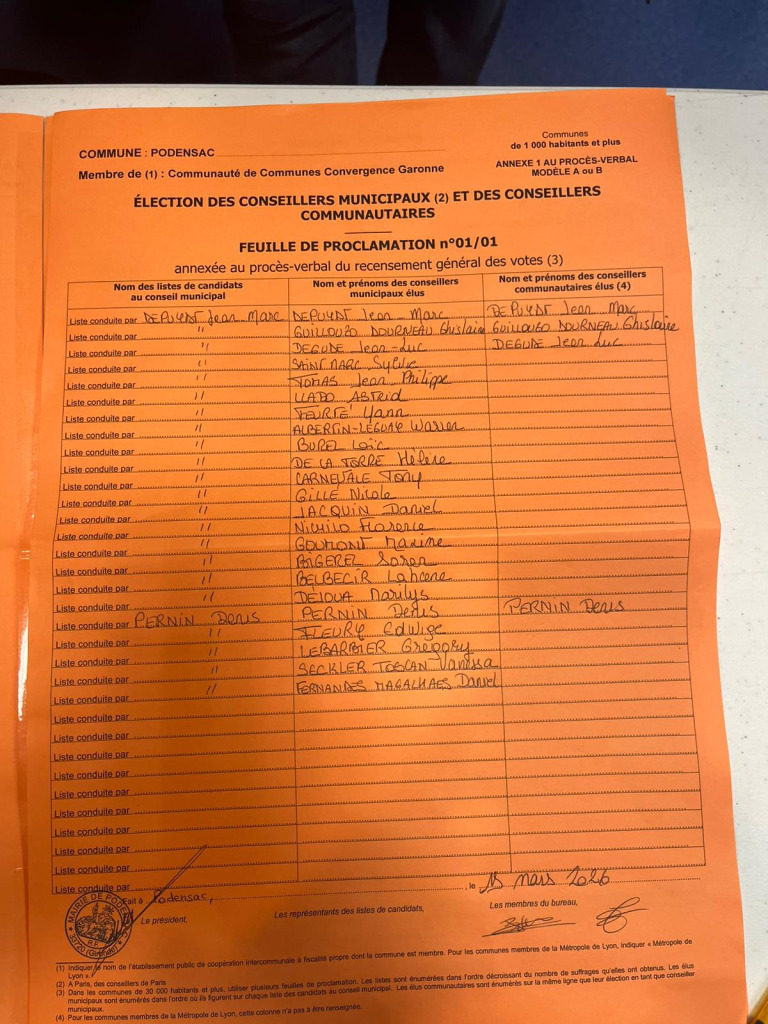 Communes
de 1 000 habitants et plus
COMMUNE : PODENSAC
ANNEXE 1 AU PROCÈS-VERBAL
MODÈLE A ou B
Membre de (1) : Communauté de Communes Convergence Garonne
ÉLECTION DES CONSEILLERS MUNICIPAUX (2) ET DES CONSEILLERS
COMMUNAUTAIRES
FEUILLE DE PROCLAMATION n°01/01
annexée au procès-verbal du recensement général des votes (3)
Nom des listes de candidats Nom et prénoms des conseillers Nom et prénoms des conseillers
au conseil municipal municipaux élus communautaires élus (4)
Liste conduite par DEPUYDT Jean-Marc DEPUYDT Jean-Marc DEPUYDT Jean Marc
Liste conduite par " GUILLOUZO DOURNEAU Ghislaine GUILLOUZO DOURNEAU Ghislaine
Liste conduite par " DEGUDE Jean-Luc DEGUDE Jean Luc
Liste conduite par " SAINT MARC Sylvie
Liste conduite par " TOMAS Jean Philippe
Liste conduite par " Astrid
Liste conduite par " Yann
Liste conduite par " Warren
Liste conduite par " BUREL Loïc
Liste conduite par " DE LA TORRE Hélène
Liste conduite par " CARNEVALE Tony
Liste conduite par " GILLE Nicole
Liste conduite par " JACQUIN Daniel
Liste conduite par " Florence
Liste conduite par " GOUMONT Maxime
Liste conduite par "
Liste conduite par " BELBECIR Lahcene
Liste conduite par " Marilys
Liste conduite par PERNIN Denis PERNIN Denis PERNIN Denis
Liste conduite par " FLEURY Edwige
Liste conduite par " LEBARBIER Gregory
Liste conduite par " SECKLER TOSCAN Vanessa
Liste conduite par " FERNANDES MAGALHAES Daniel
Liste conduite par
Liste conduite par
Liste conduite par
Liste conduite par
Liste conduite par
Liste conduite par
Liste conduite par
Liste conduite par
Liste conduite par
Liste conduite par
Fait à Podensac, , le 15 mars 2026
Le président, Les représentants des listes de candidats, Les membres du bureau,
MAIRIE DE PODENSAC
R.F.
33720 (Gironde)
(1) Indiquer le nom de l'établissement public de coopération intercommunale à fiscalité propre dont la commune est membre. Pour les communes membres de la Métropole de Lyon, indiquer « Métropole de
Lyon ».
(2) A Paris, des conseillers de Paris
(3) Dans les communes de 30 000 habitants et plus, utiliser plusieurs feuilles de proclamation. Les listes sont énumérées dans l'ordre décroissant du nombre de suffrages qu'elles ont obtenus. Les élus
municipaux sont énumérés dans l'ordre où ils figurent sur chaque liste des candidats au conseil municipal. Les élus communautaires sont énumérés sur la même ligne que leur élection en tant que conseiller
municipaux.
(4) Pour les communes membres de la Métropole de Lyon, cette colonne n'a pas à être renseignée.